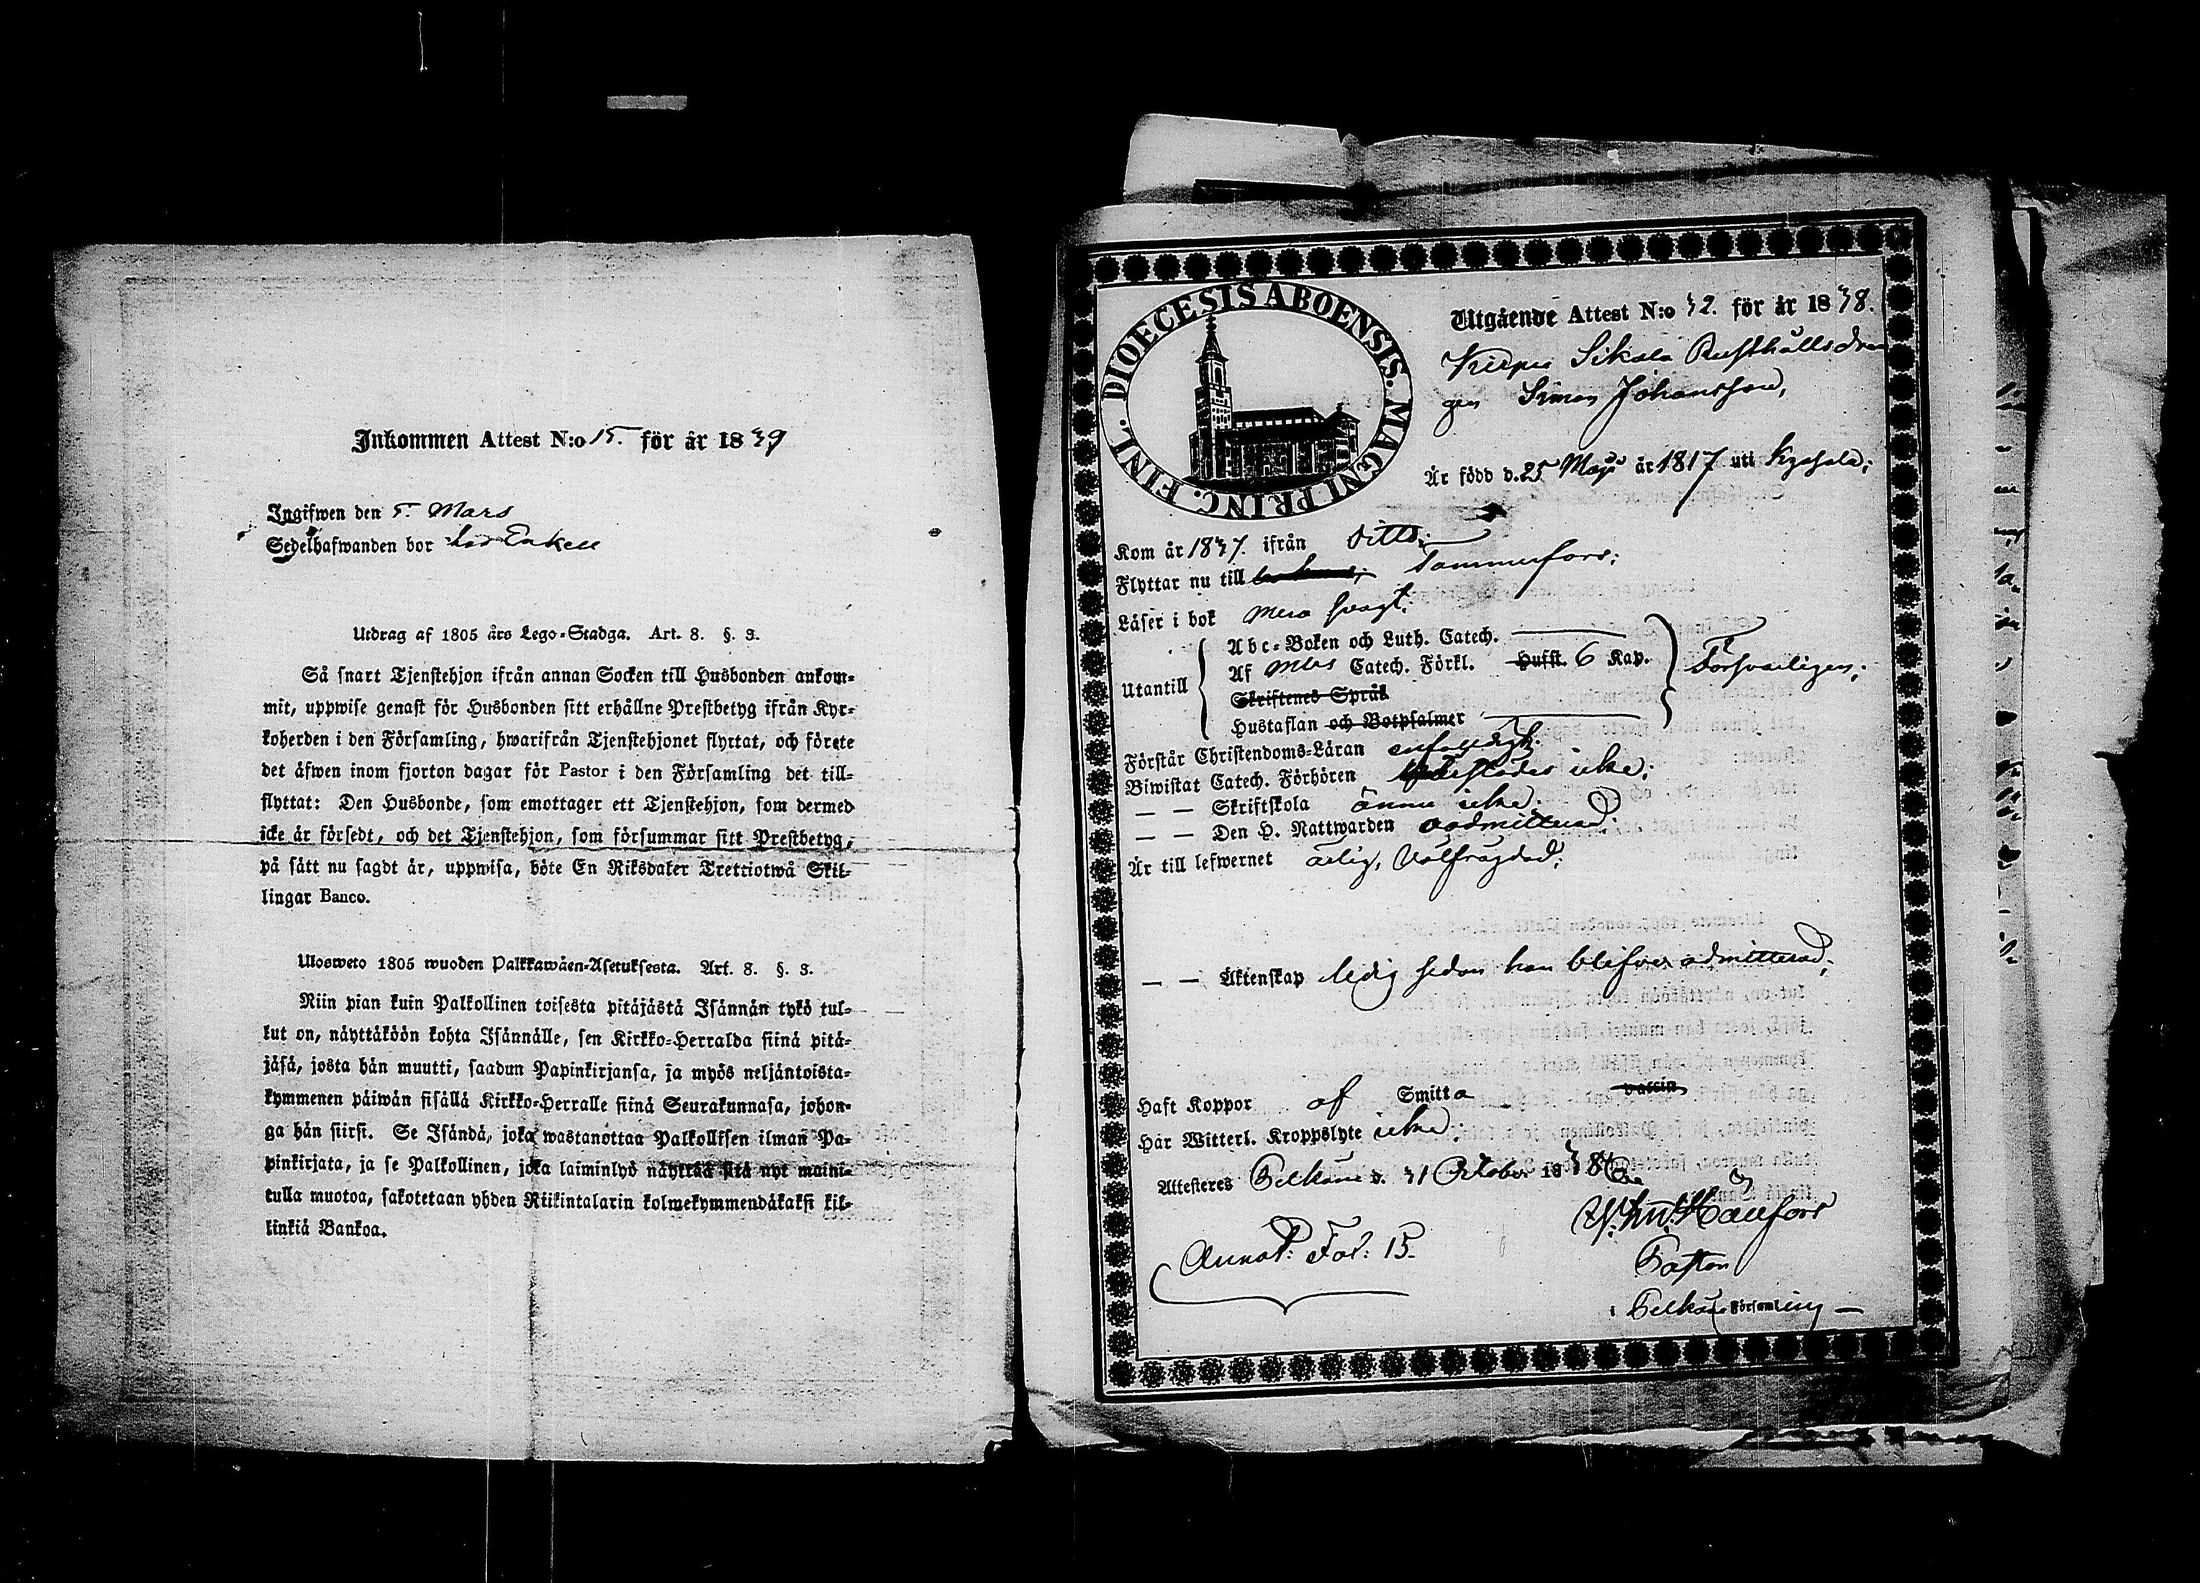 Inkommen Attest N:o 15. för år 1839
Ingifwen den 5. Mars
Sedelhafwanden bor hos Enkell
Utdrag af 1805 års Lego-Stadga. Art. 8. §. 3.
Så snart Tjenstehjon ifrån annan Socken till Husbonden ankom-
mit, uppwise genast för Husbonden sitt erhållne Prestbetyg ifrån Kyr-
koherden i den Församling, hwarifrån Tjenstehjonet flyttat, och förete
det äfwen inom fjorton dagar för Pastor i den Församling det till-
flyttat: Den Husbonde, som emottager ett Tjenstehjon, som dermed
icke är försedt, och det Tjenstehjon, som försummar sitt Prestbetyg,
på sätt nu sagdt är, uppwisa, böte En Riksdaler Trettiotwå Skil-
lingar Banco.
Ulosweto 1805 wuoden Palkkawäen-Asetuksesta. Art. 8. §. 3.
Niin pian kuin Palkollinen toisesta pitäjästä Isännän tykö tul-
lut on, näyttäköön kohta Isännälle, sen Kirkko-Herralda siinä pitä-
jäsä, josta hän muutti, saadun Papinkirjansa, ja myös neljäntoista-
kymmenen päiwän sisällä Kirkko-Herralle siinä Seurakunnasa, johon-
ga hän siirsi. Se Isändä, joka wastanottaa Palkollisen ilman Pa-
pinkirjata, ja se Palkollinen, joka laiminlyö näyttää sitä nyt maini-
tulla muotoa, sakotetaan yhden Riikintalarin kolmekymmendäkaksi kil-
linkiä Bankoa.
DIOECESIS ABOENSIS. MAGNI PRINC. FINL.
Utgående Attest N:o 32. för år 1838.
Sikala Rusthållsdrän
gen Simon Johansson,
Är född d. 25 Maji år 1817 uti Kyrsala;
Kom år 1837. ifrån ditto;
Flyttar nu till Tammerfors;
Läser i bok svagt;
Abc-Boken och Luth. Catech.
Af Catech. Förkl. Hufst. 6 Kap.
Utantill Försvarligen;
Skriftenes Språk
Hustaflan och Botpsalmer
Förstår Christendoms-Läran enfaldigt.
Biwistat Catech. Förhören icke;
— — Skriftskola ännu icke;
— — Den H. Nattwarden oadmitterad;
Är till lefwernet ärlig, välfrägdad;
— — Äktenskap ledig sedan han blifver admitterad;
Haft Koppor af Smitta vaccin
Har Witterl. Kroppslyte icke;
Attesteres Pelkäne d. 31 October 1838
Hanfors
Annot: Fol: 15.
Pastor
i Pelkäne Församling —